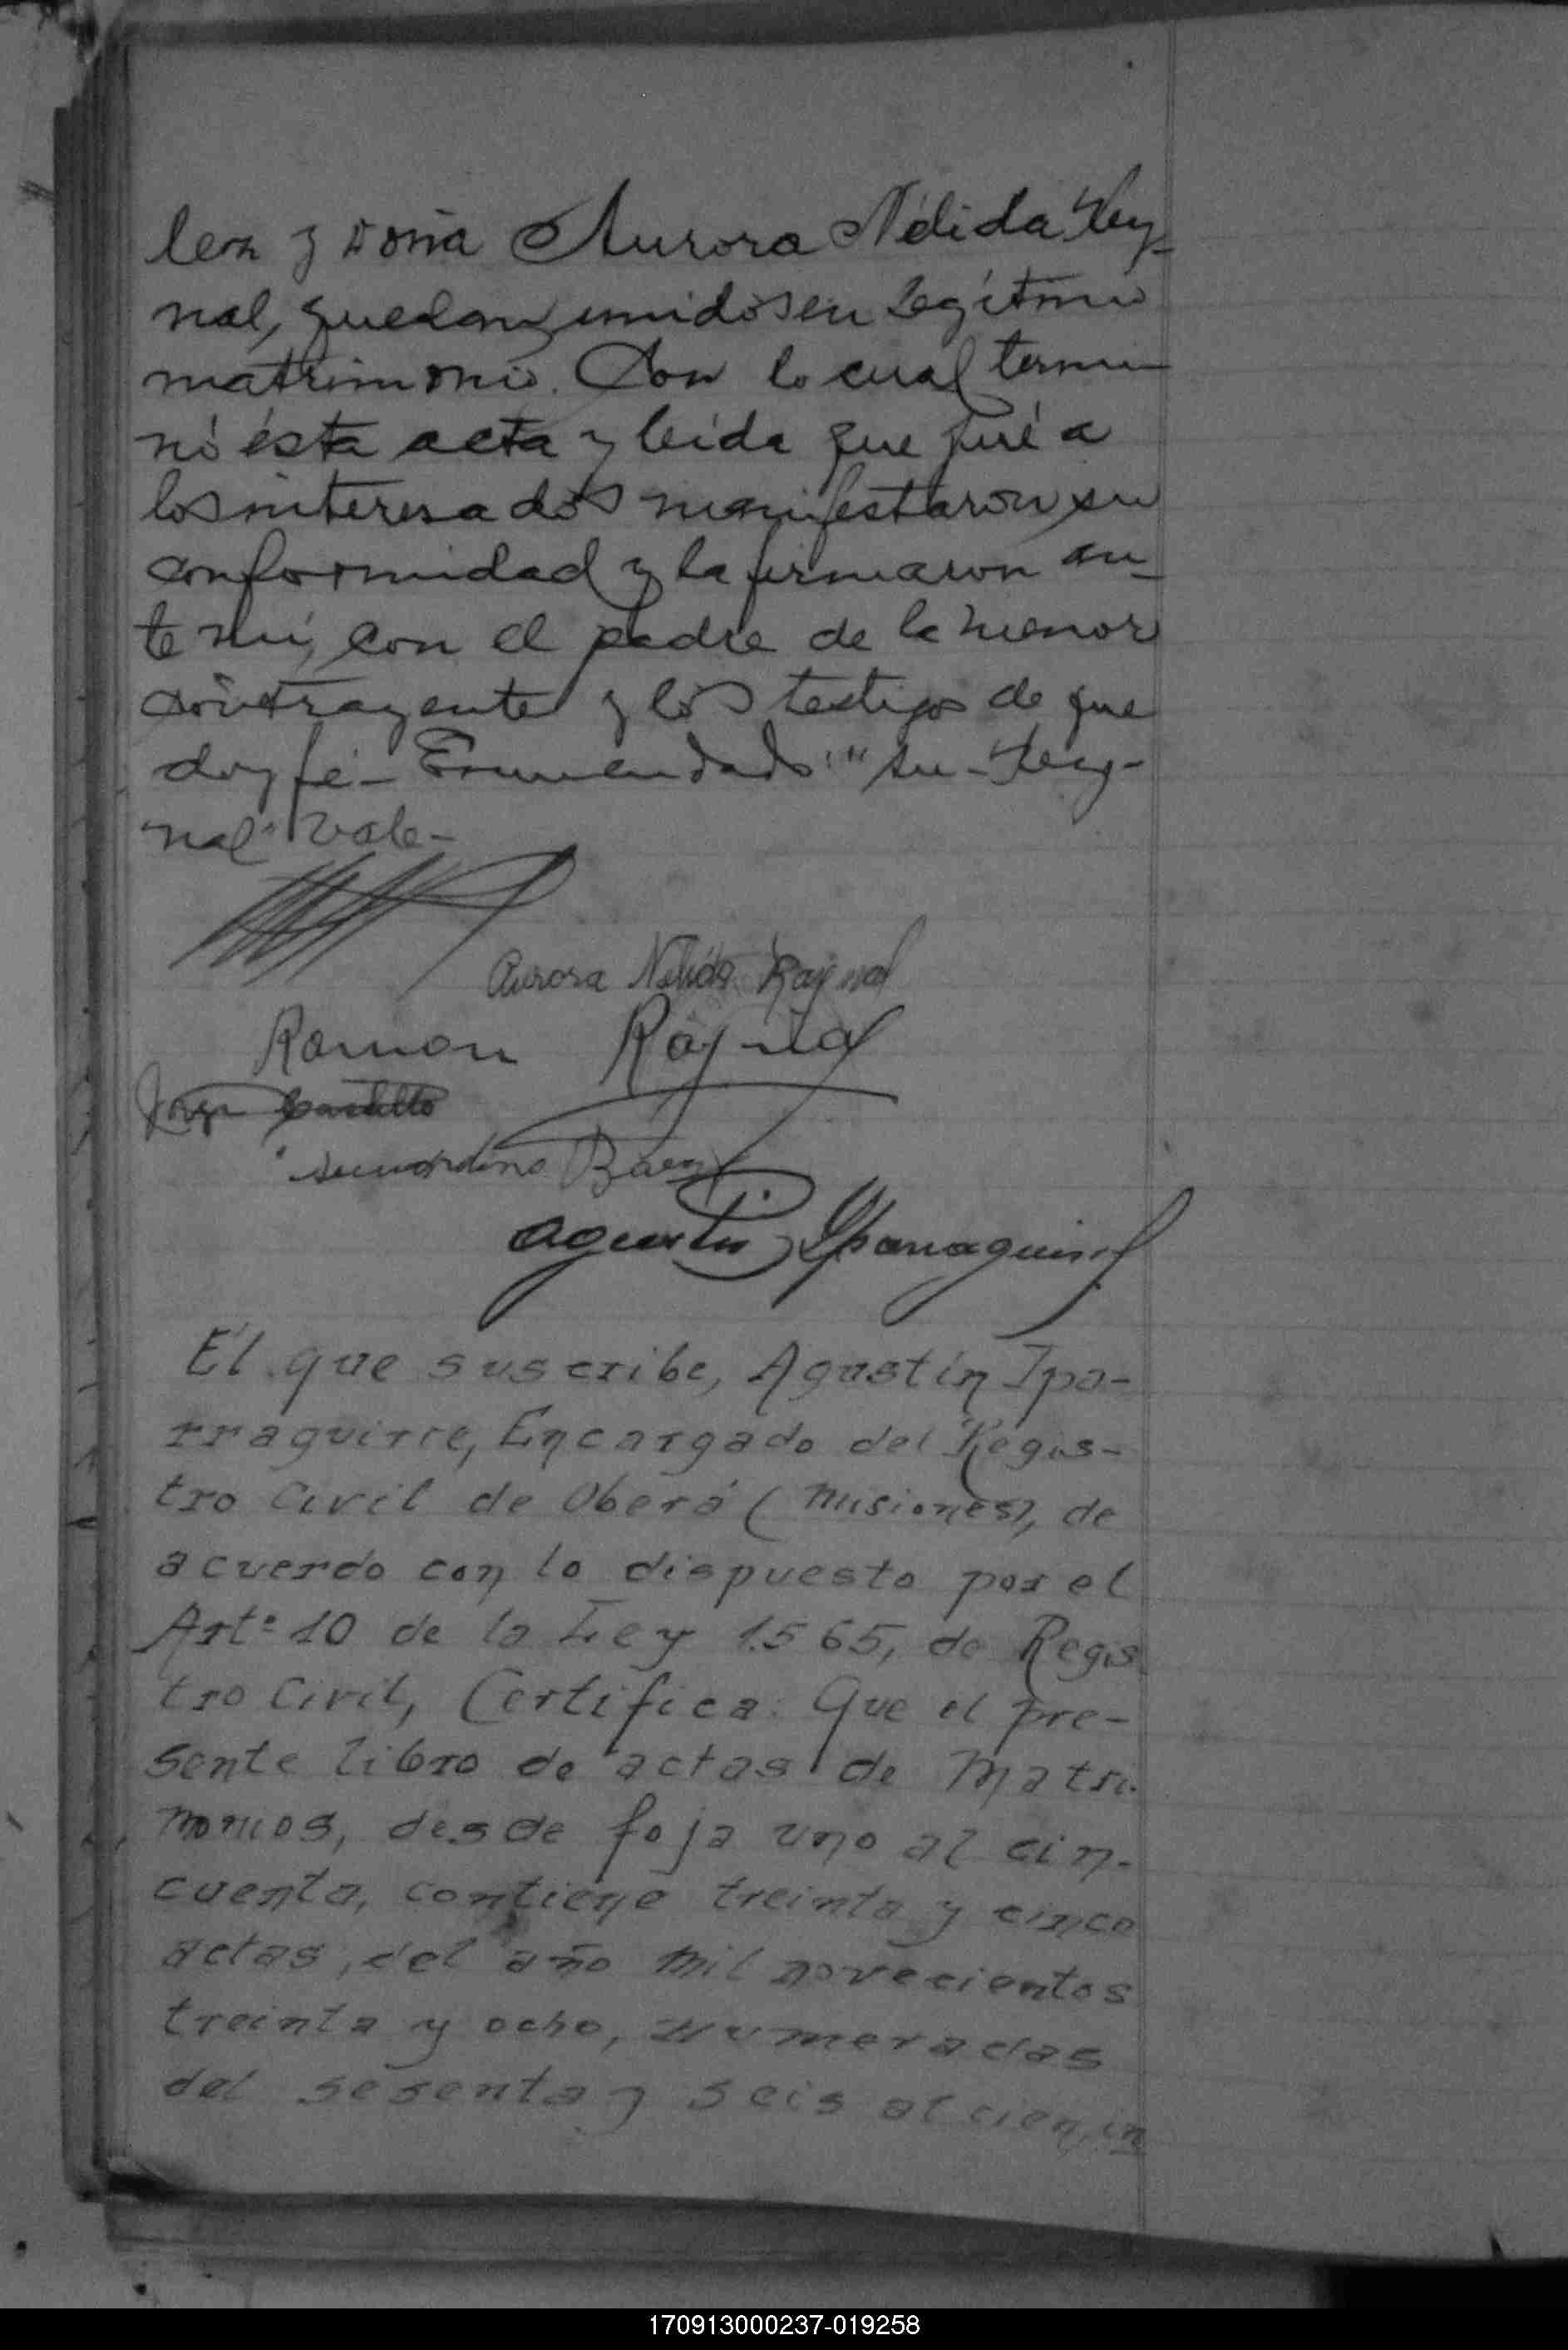 lez y Doña Aurora Nélida Rey-
nal, quedan unidos en legítimo
matrimonio. Con lo cual termi-
nó ésta acta y leída que fué a
los interesados manifestaron su
conformidad y la firmaron an-
te mi, con el padre de la menor
contrayente y los testigos de que
doy fé- Enmendado: "su- Rey-
nal" Vale-
Aurora Nelida Raynal
Ramon Raynal
Jorge Castillo
Secundino Baez
Agustin Yparraguirre
El que suscribe, Agustín Ipa-
rraguirre, Encargado del Regis-
tro Civil de Oberá (Misiones), de
acuerdo con lo dispuesto por el
Artº 10 de la Ley 1.565, de Regis
tro Civil, Certifica: Que el pre-
sente libro de actas de Matri-
monios, desde foja uno al cin-
cuenta, contiene treinta y cinco
actas, del año mil novecientos
treinta y ocho, numeradas
del sesenta y seis al cien, in
170913000237-019258